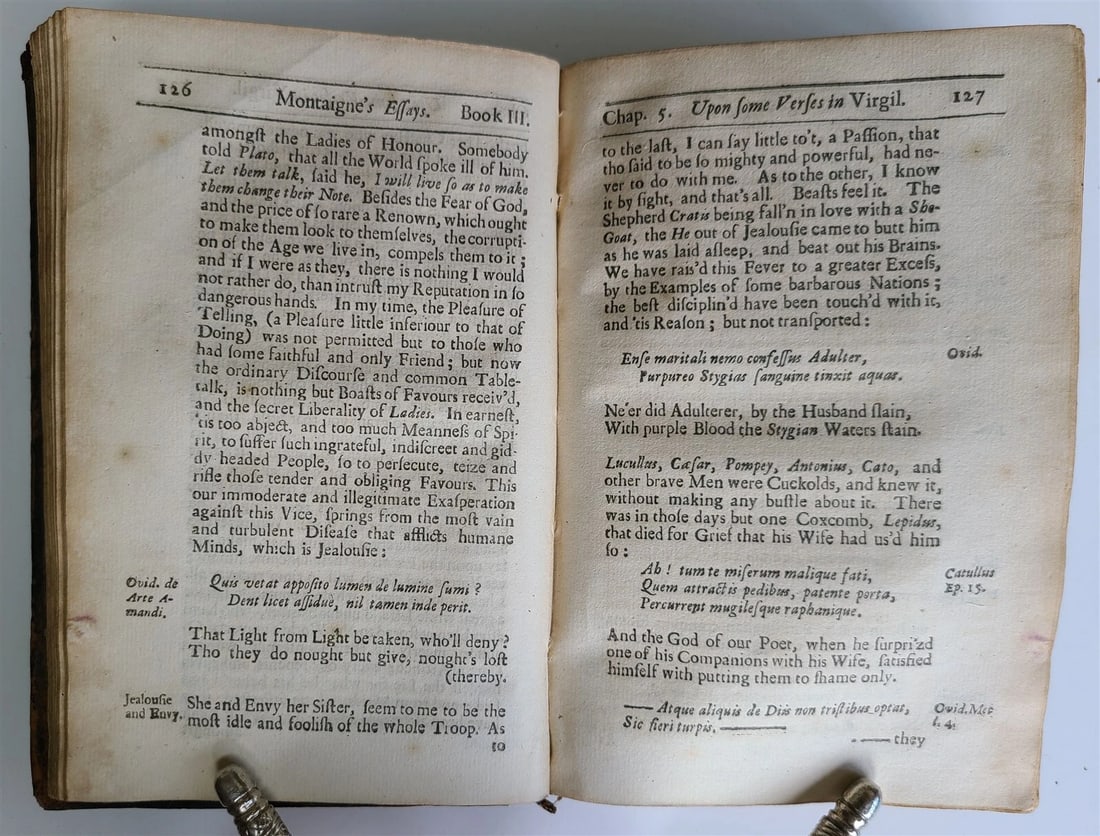 126 Montaigne's Eſſays. Book III.
amongſt the Ladies of Honour. Somebody
told Plato, that all the World ſpoke ill of him.
Let them talk, ſaid he, I will live ſo as to make
them change their Note. Beſides the Fear of God,
and the price of ſo rare a Renown, which ought
to make them look to themſelves, the corrupti-
on of the Age we live in, compels them to it;
and if I were as they, there is nothing I would
not rather do, than intruſt my Reputation in ſo
dangerous hands. In my time, the Pleaſure of
Telling, (a Pleaſure little inferiour to that of
Doing) was not permitted but to thoſe who
had ſome faithful and only Friend; but now
the ordinary Diſcourſe and common Table-
talk, is nothing but Boaſts of Favours receiv'd,
and the ſecret Liberality of Ladies. In earneſt,
'tis too abject, and too much Meanneſs of Spi-
rit, to ſuffer ſuch ingrateful, indiſcreet and gid-
dy headed People, ſo to perſecute, teize and
rifle thoſe tender and obliging Favours. This
our immoderate and illegitimate Exaſperation
againſt this Vice, ſprings from the moſt vain
and turbulent Diſeaſe that afflicts humane
Minds, which is Jealouſie:
Ovid. de
Arte A-
mandi.
Quis vetat appoſito lumen de lumine ſumi?
Dent licet aſſidue, nil tamen inde perit.
That Light from Light be taken, who'll deny?
Tho they do nought but give, nought's loſt
(thereby.
Jealouſie
and Envy.
She and Envy her Siſter, ſeem to me to be the
moſt idle and fooliſh of the whole Troop. As
to
Chap. 5. Upon ſome Verſes in Virgil. 127
to the laſt, I can ſay little to't, a Paſſion, that
tho ſaid to be ſo mighty and powerful, had ne-
ver to do with me. As to the other, I know
it by ſight, and that's all. Beaſts feel it. The
Shepherd Cratis being fall'n in love with a She-
Goat, the He out of Jealouſie came to butt him
as he was laid aſleep, and beat out his Brains.
We have rais'd this Fever to a greater Exceſs,
by the Examples of ſome barbarous Nations;
the beſt diſciplin'd have been touch'd with it,
and 'tis Reaſon; but not tranſported:
Enſe maritali nemo confeſſus Adulter,
Purpureo Stygias ſanguine tinxit aquas.
Ovid.
Ne'er did Adulterer, by the Husband ſlain,
With purple Blood the Stygian Waters ſtain.
Lucullus, Cæſar, Pompey, Antonius, Cato, and
other brave Men were Cuckolds, and knew it,
without making any buſtle about it. There
was in thoſe days but one Coxcomb, Lepidus,
that died for Grief that his Wife had us'd him
ſo:
Ah! tum te miſerum malique fati,
Quem attractis pedibus, patente porta,
Percurrent mugileſque raphanique.
Catullus
Ep. 15.
And the God of our Poet, when he ſurpriz'd
one of his Companions with his Wife, ſatisfied
himſelf with putting them to ſhame only.
—— Atque aliquis de Diis non triſtibus optat,
Sic fieri turpis. ——
Ovid. Met
l. 4.
—— they